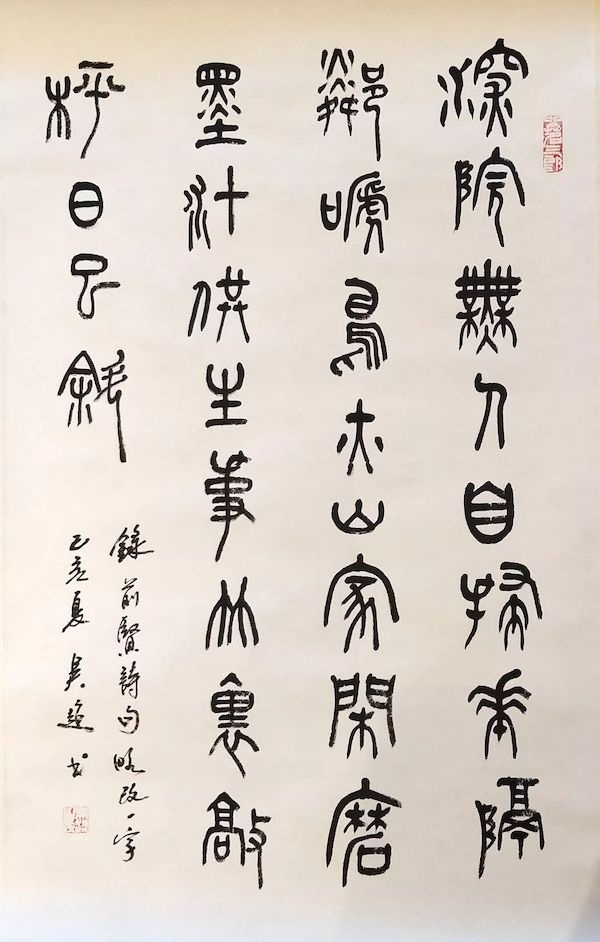 深院無人自掃華隔
鄰嗁鳥亦山家閑磨
墨汁供生事竹裏敲
枰日已斜
錄前賢詩句略改一字
己亥夏吳書